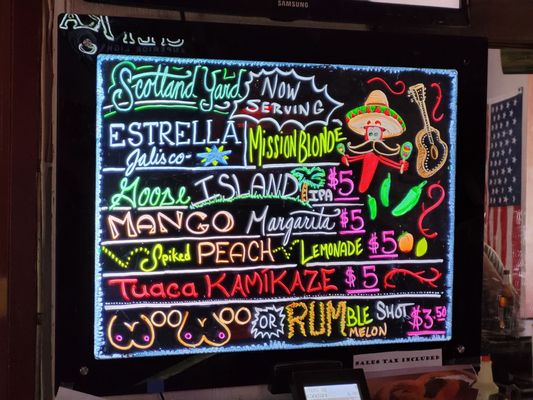 SAMSUNG
Scotland Yard
NOW SERVING
ESTRELLA
Jalisco
Mission Blonde
Goose ISLAND IPA $5
MANGO Margarita $5
Spiked PEACH LEMONADE $5
Tuaca KAMIKAZE $5
OR RUMBLE SHOT
MELON
$3.50
SALES TAX INCLUDED